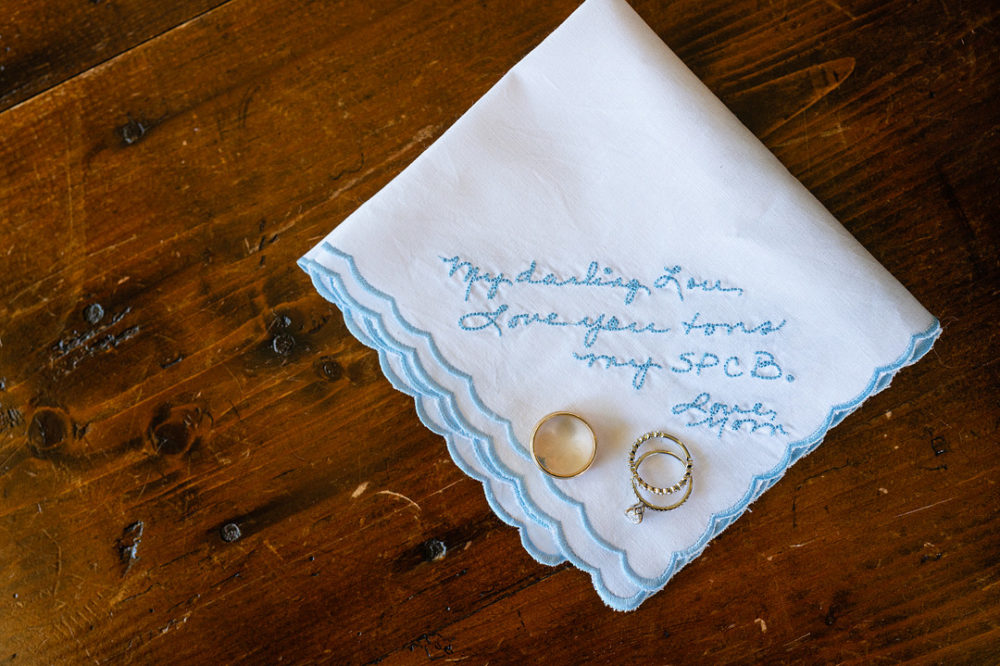 My darling Lou,
Love you tons
my SPCB.
Love,
Mom